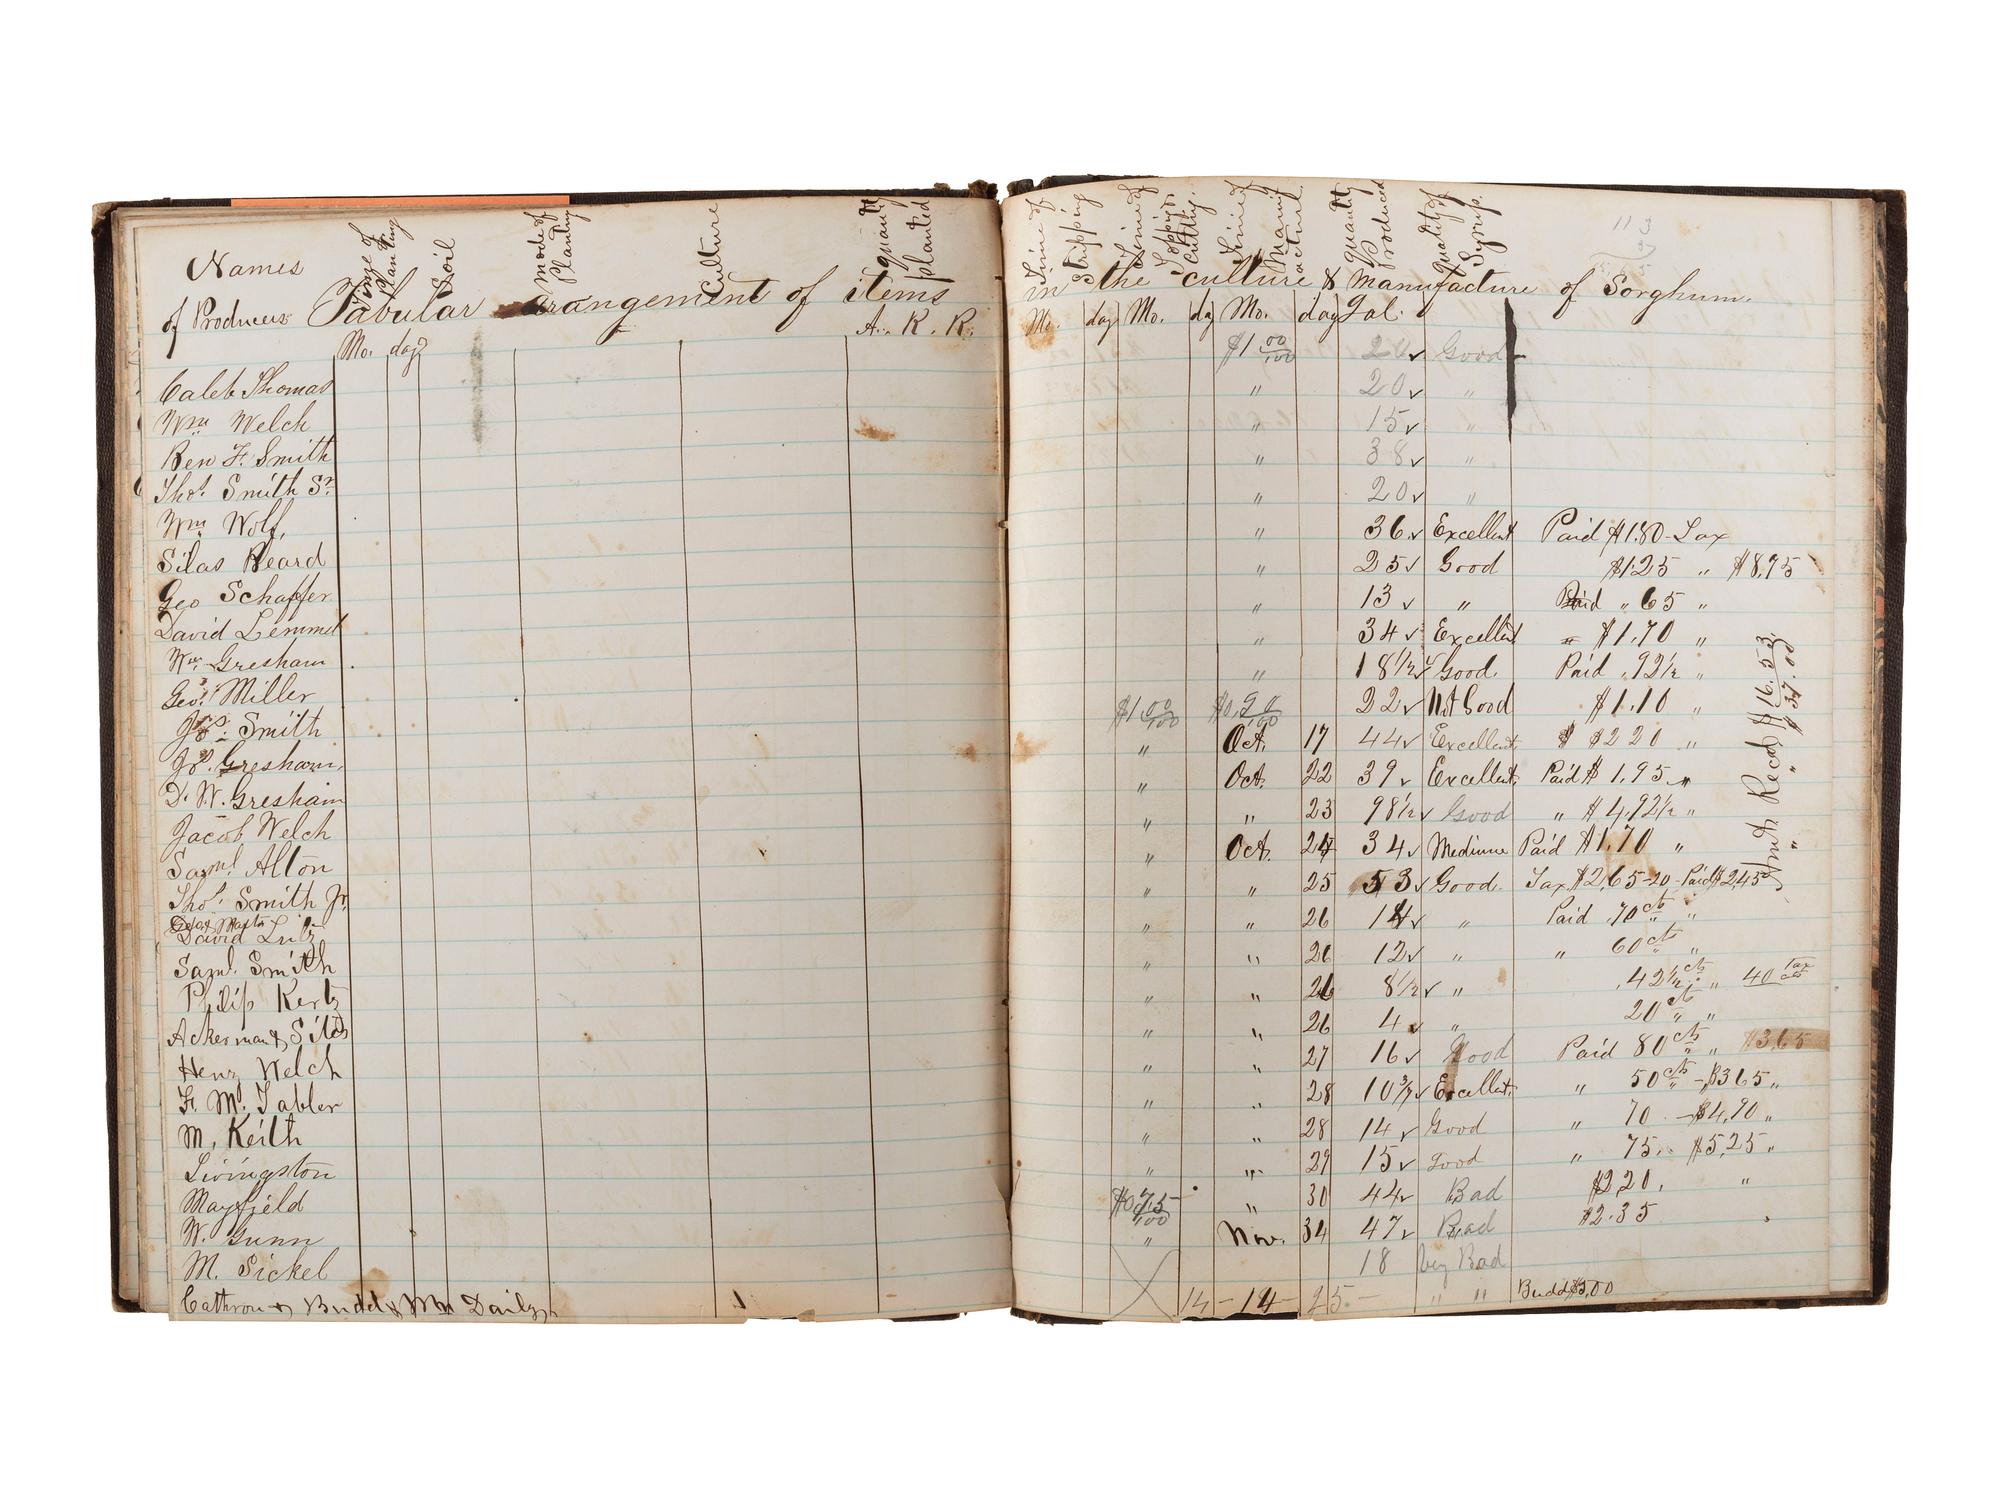 Names
of Producers
Time of Planting
Soil
Mode of Planting
Culture
Quantity planted
Tabular arangement of items
Mo. day
A. R. R.
Caleb Thomas
Wm Welch
Ben F. Smith
Thos. Smith Sr.
Wm Wolf,
Silas Beard
Geo Schaffer
David Lemmel
Wm. Gresham
Geo. Miller
Jos. Smith
Jos. Gresham,
D. W. Gresham
Jacob Welch
Saml. Alton
Thos. Smith Jr.
David Lutz
Saml. Smith
Philip Kertz
Ackerman & Siles
Henry Welch
F. M. Tabler
M. Keith
Livingston
Mayfield
W. Gunn
M. Sickel
Cathron & Budd & Wm Daily
Time of Stripping
Time of Topping & Cutting
Time of Manufacture
Quantity Produced
Quality of Syrup
113
in the culture & manufacture of Sorghum.
Mo. day Mo. day Mo. day Gal.
$1 00/100 20 Good
" 20 "
" 15 "
" 38 "
" 20 "
" 36 Excellent Paid $1.80 Tax
" 25 Good $1.25 " $8,95
" 13 " Paid " 65 "
" 34 Excellent " $1.70 "
" 18 1/2 Good. Paid .92 1/2 "
$1 00/100 $0,90/100 22 Not Good $1.10 "
" Oct. 17 44 Excellent $ $2 20 "
" Oct. 22 39 Excellent Paid $1.95 "
" " 23 98 1/2 Good " $4,92 1/2 "
" Oct. 24 34 Medium Paid $1.70 "
" " 25 53 Good Tax $2,65-20-Paid $2,45
" " 26 14 " Paid .70 cts "
" " 26 12 " " 60 cts "
" " 26 8 1/2 " .42 1/2 cts " 40 cts tax
" " 26 4 " 20 cts "
" " 27 16 Good Paid 80 cts " $3,65
" " 28 10 3/4 Excellent. " 50 cts - $3 65 "
" " 28 14 Good " 70 - $4,90 "
" " 29 15 Good " 75 $5,25 "
$0 75/100 " 30 44 Bad $2,20, "
" Nov. 34 47 Bad $2.35
18 very Bad
14 - 14 - 25 - " " Budd $5,00
Amt Recd $16.53
" " $37.00